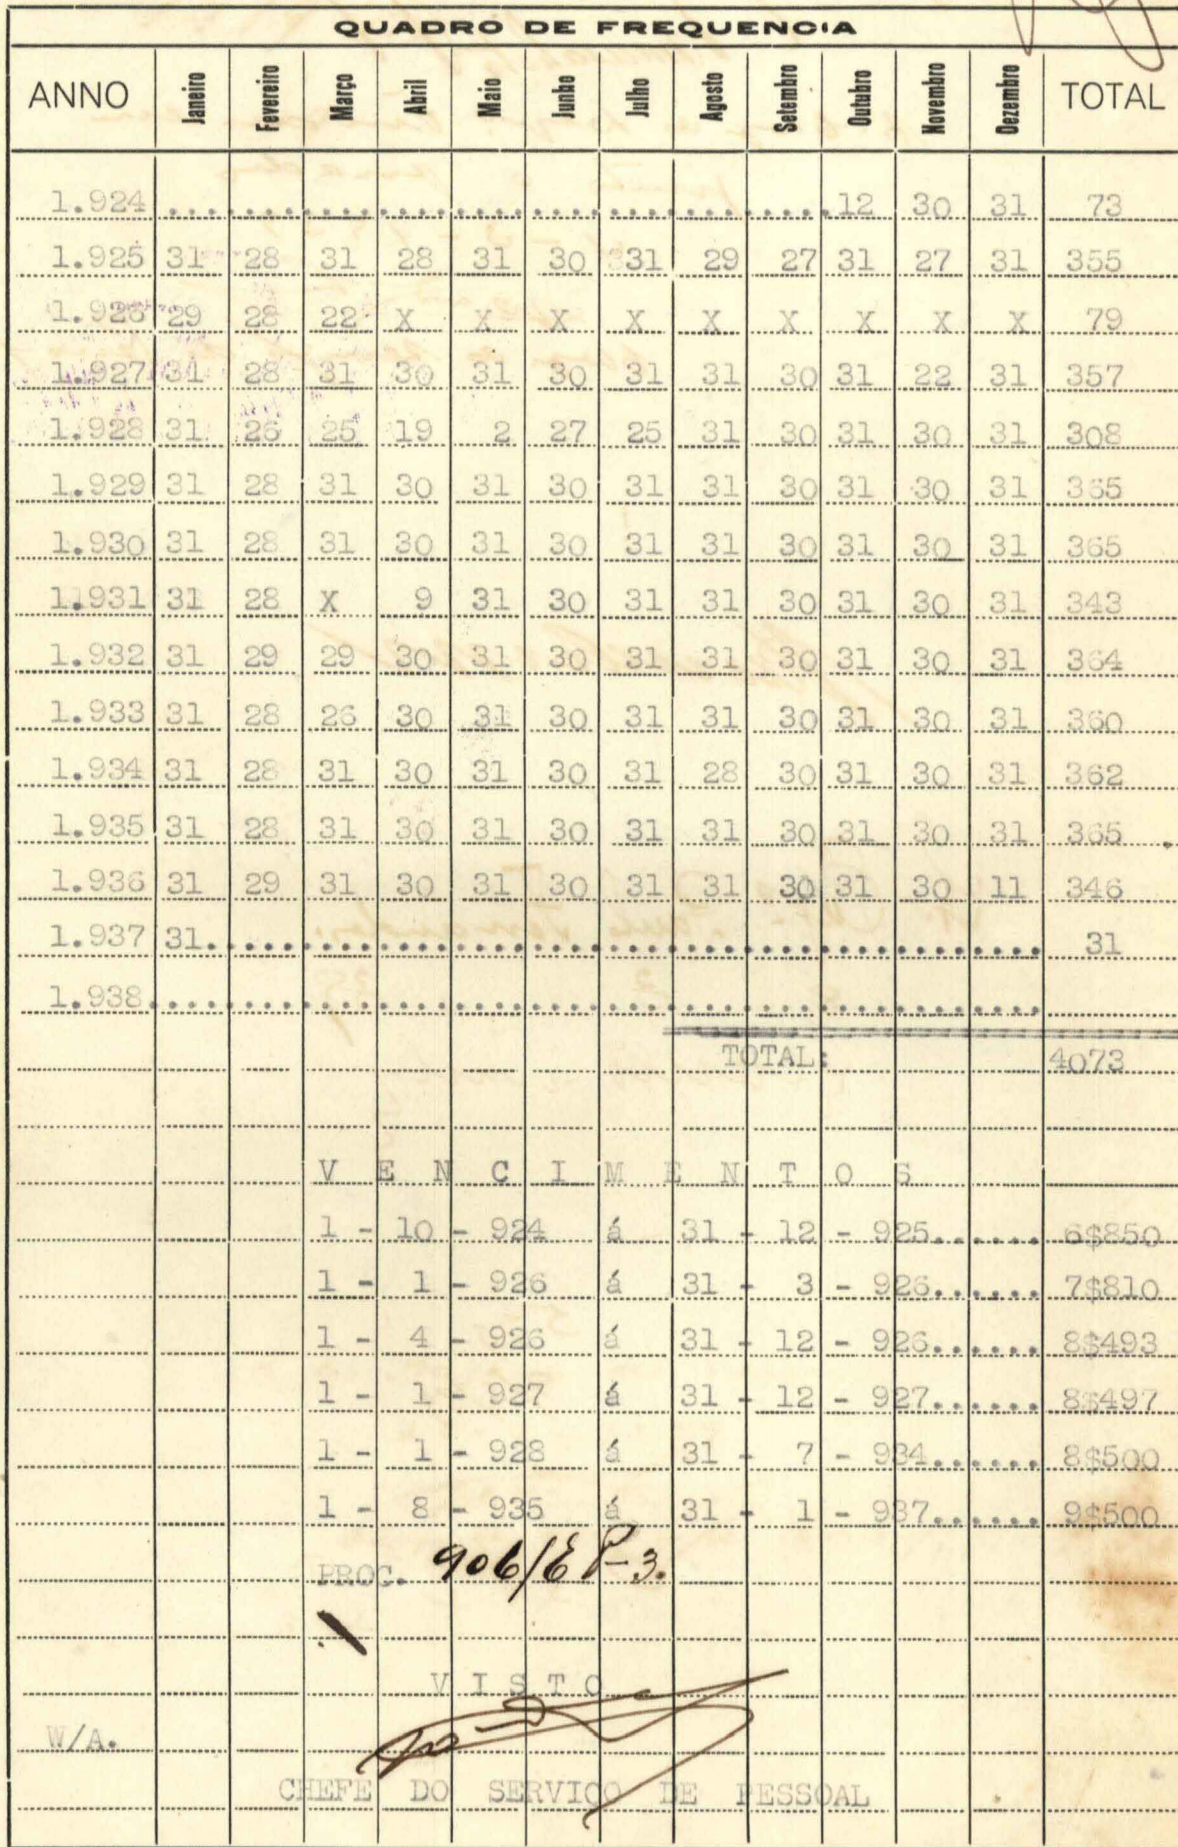 QUADRO DE FREQUENCIA
ANNO Janeiro Fevereiro Março Abril Maio Junho Julho Agosto Setembro Outubro Novembro Dezembro TOTAL
1.924 12 30 31 73
1.925 31 28 31 28 31 30 31 29 27 31 27 31 355
1.926 29 28 22 X X X X X X X X X 79
1.927 31 28 31 30 31 30 31 31 30 31 22 31 357
1.928 31 26 25 19 2 27 25 31 30 31 30 31 308
1.929 31 28 31 30 31 30 31 31 30 31 30 31 365
1.930 31 28 31 30 31 30 31 31 30 31 30 31 365
1.931 31 28 X 9 31 30 31 31 30 31 30 31 343
1.932 31 29 29 30 31 30 31 31 30 31 30 31 364
1.933 31 28 26 30 31 30 31 31 30 31 30 31 360
1.934 31 28 31 30 31 30 31 28 30 31 30 31 362
1.935 31 28 31 30 31 30 31 31 30 31 30 31 365
1.936 31 29 31 30 31 30 31 31 30 31 30 11 346
1.937 31 31
1.938
TOTAL: 4073
V E N C I M E N T O S
1 - 10 - 924 á 31 - 12 - 925...... 6$850
1 - 1 - 926 á 31 - 3 - 926...... 7$810
1 - 4 - 926 á 31 - 12 - 926...... 8$493
1 - 1 - 927 á 31 - 12 - 927...... 8$497
1 - 1 - 928 á 31 - 7 - 934...... 8$500
1 - 8 - 935 á 31 - 1 - 937...... 9$500
PROC. 906/EP-3.
V I S T O
W/A.
CHEFE DO SERVIÇO DE PESSOAL